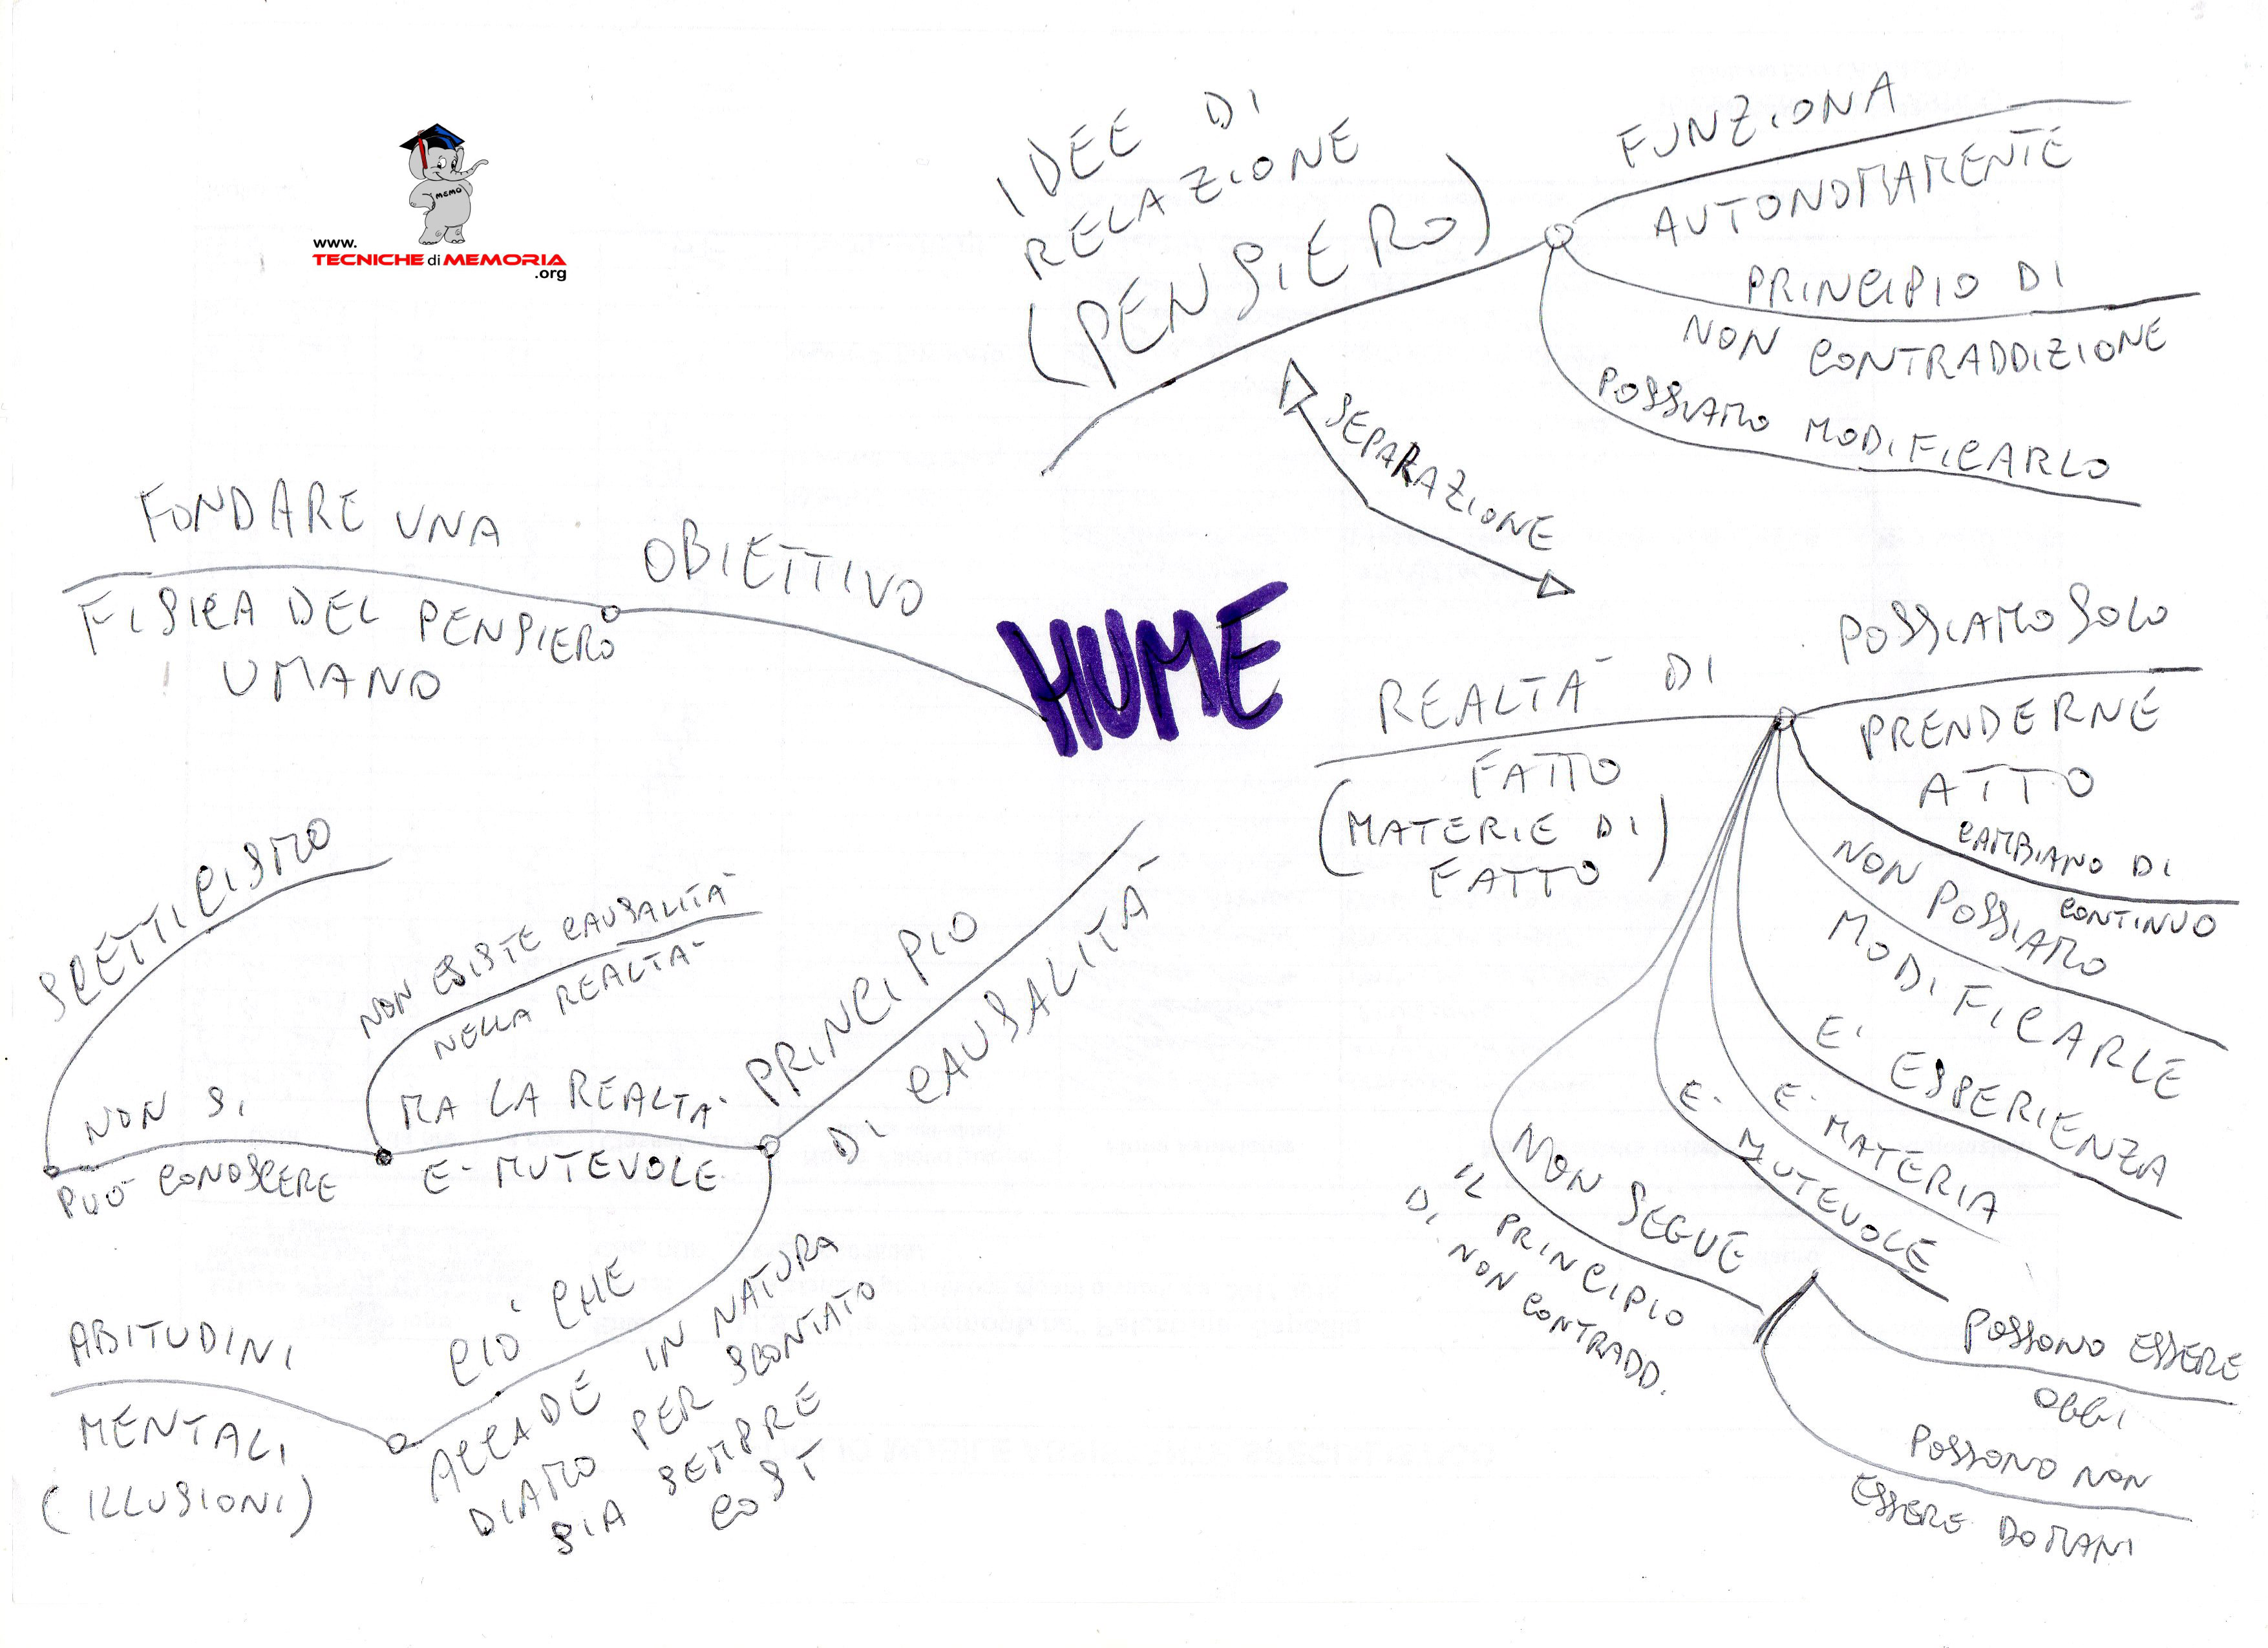 MEMO
www.
TECNICHE di MEMORIA
.org
IDEE DI
RELAZIONE
(PENSIERO)
FUNZIONA
AUTONOMAMENTE
PRINCIPIO DI
NON CONTRADDIZIONE
POSSIAMO MODIFICARLO
SEPARAZIONE
FONDARE UNA
FISICA DEL PENSIERO
UMANO
OBIETTIVO
HUME
REALTÀ DI
FATTO
(MATERIE DI
FATTO)
POSSIAMO SOLO
PRENDERNE
ATTO
CAMBIANO DI
CONTINUO
NON POSSIAMO
MODIFICARLE
E' ESPERIENZA
E' MATERIA
E' MUTEVOLE
NON SEGUE
IL PRINCIPIO
DI NON CONTRADD.
POSSONO ESSERE
OGGI
POSSONO NON
ESSERE DOMANI
PRINCIPIO
DI CAUSALITÀ
MA LA REALTÀ
E' MUTEVOLE
NON ESISTE CAUSALITÀ
NELLA REALTÀ
NON SI
PUÒ CONOSCERE
SCETTICISMO
CIÒ CHE
ACCADE IN NATURA
DIAMO PER SCONTATO
SIA SEMPRE
COSÌ
ABITUDINI
MENTALI
(ILLUSIONI)